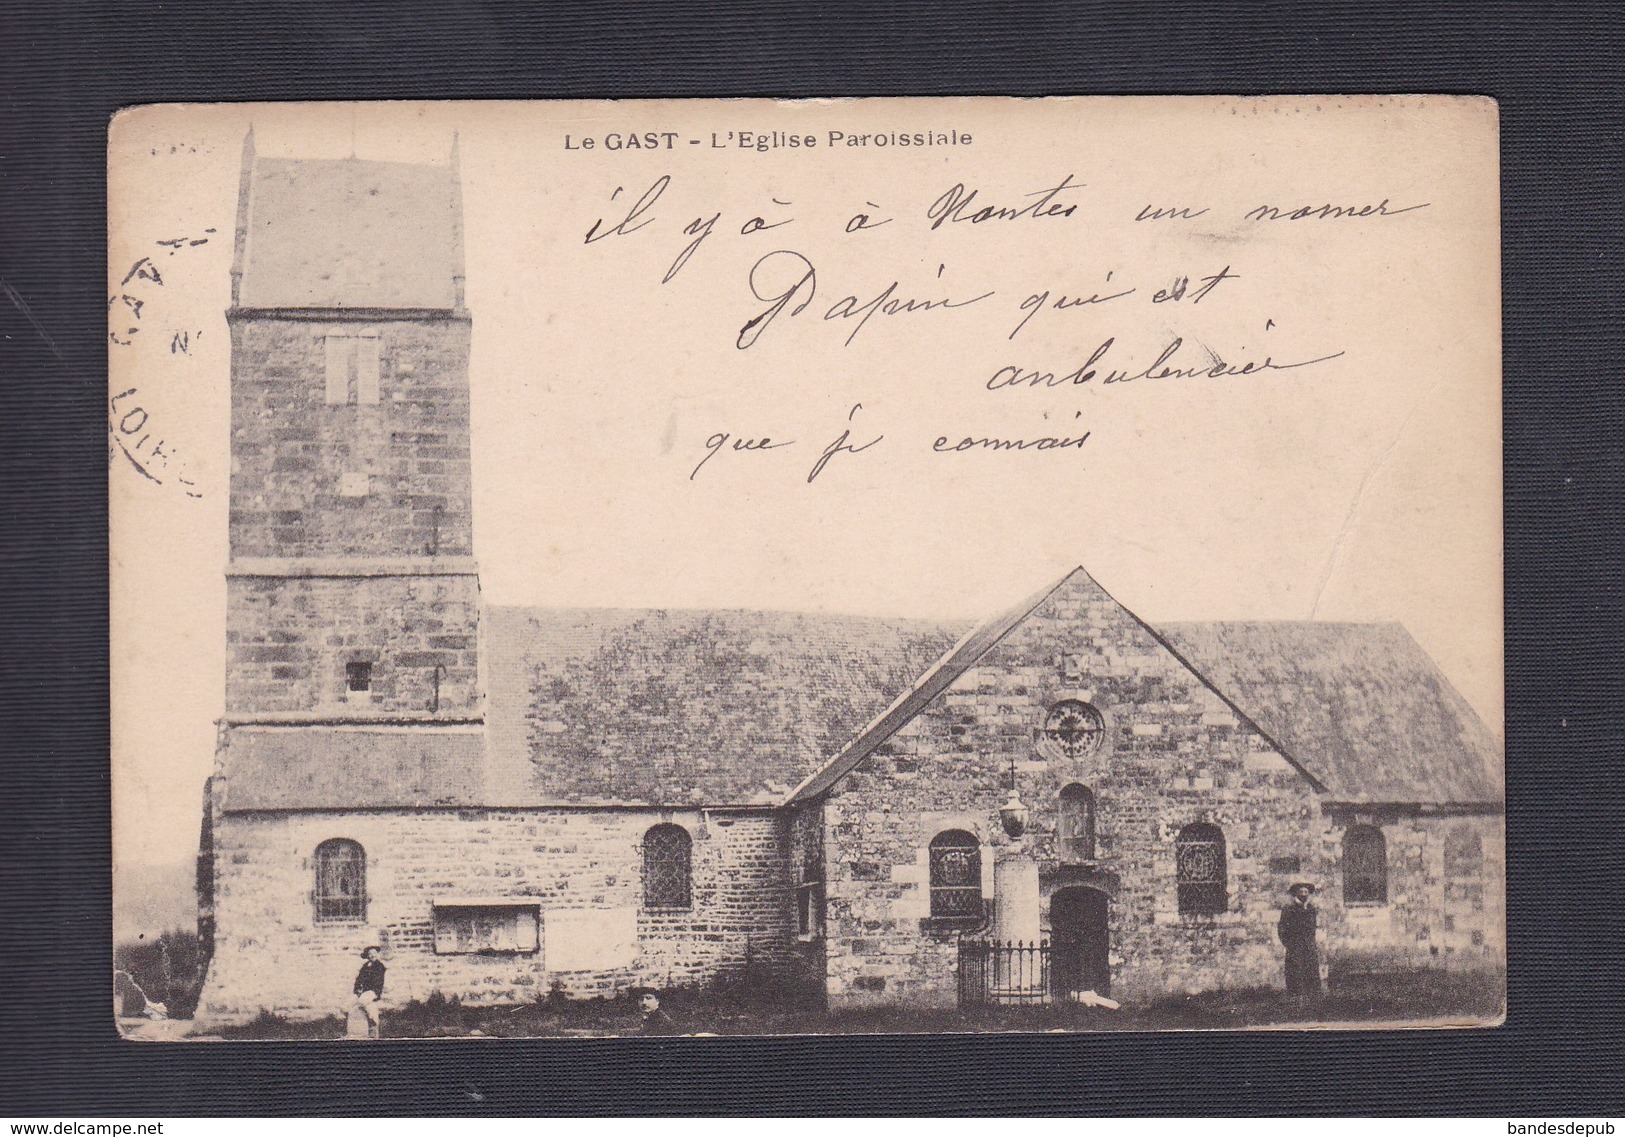 Le GAST - L'Eglise Paroissiale
il y à à Nantes un nomer
Papin qui est
anbulencier
que je connais
LOIR
www.delcampe.net
bandesdepub